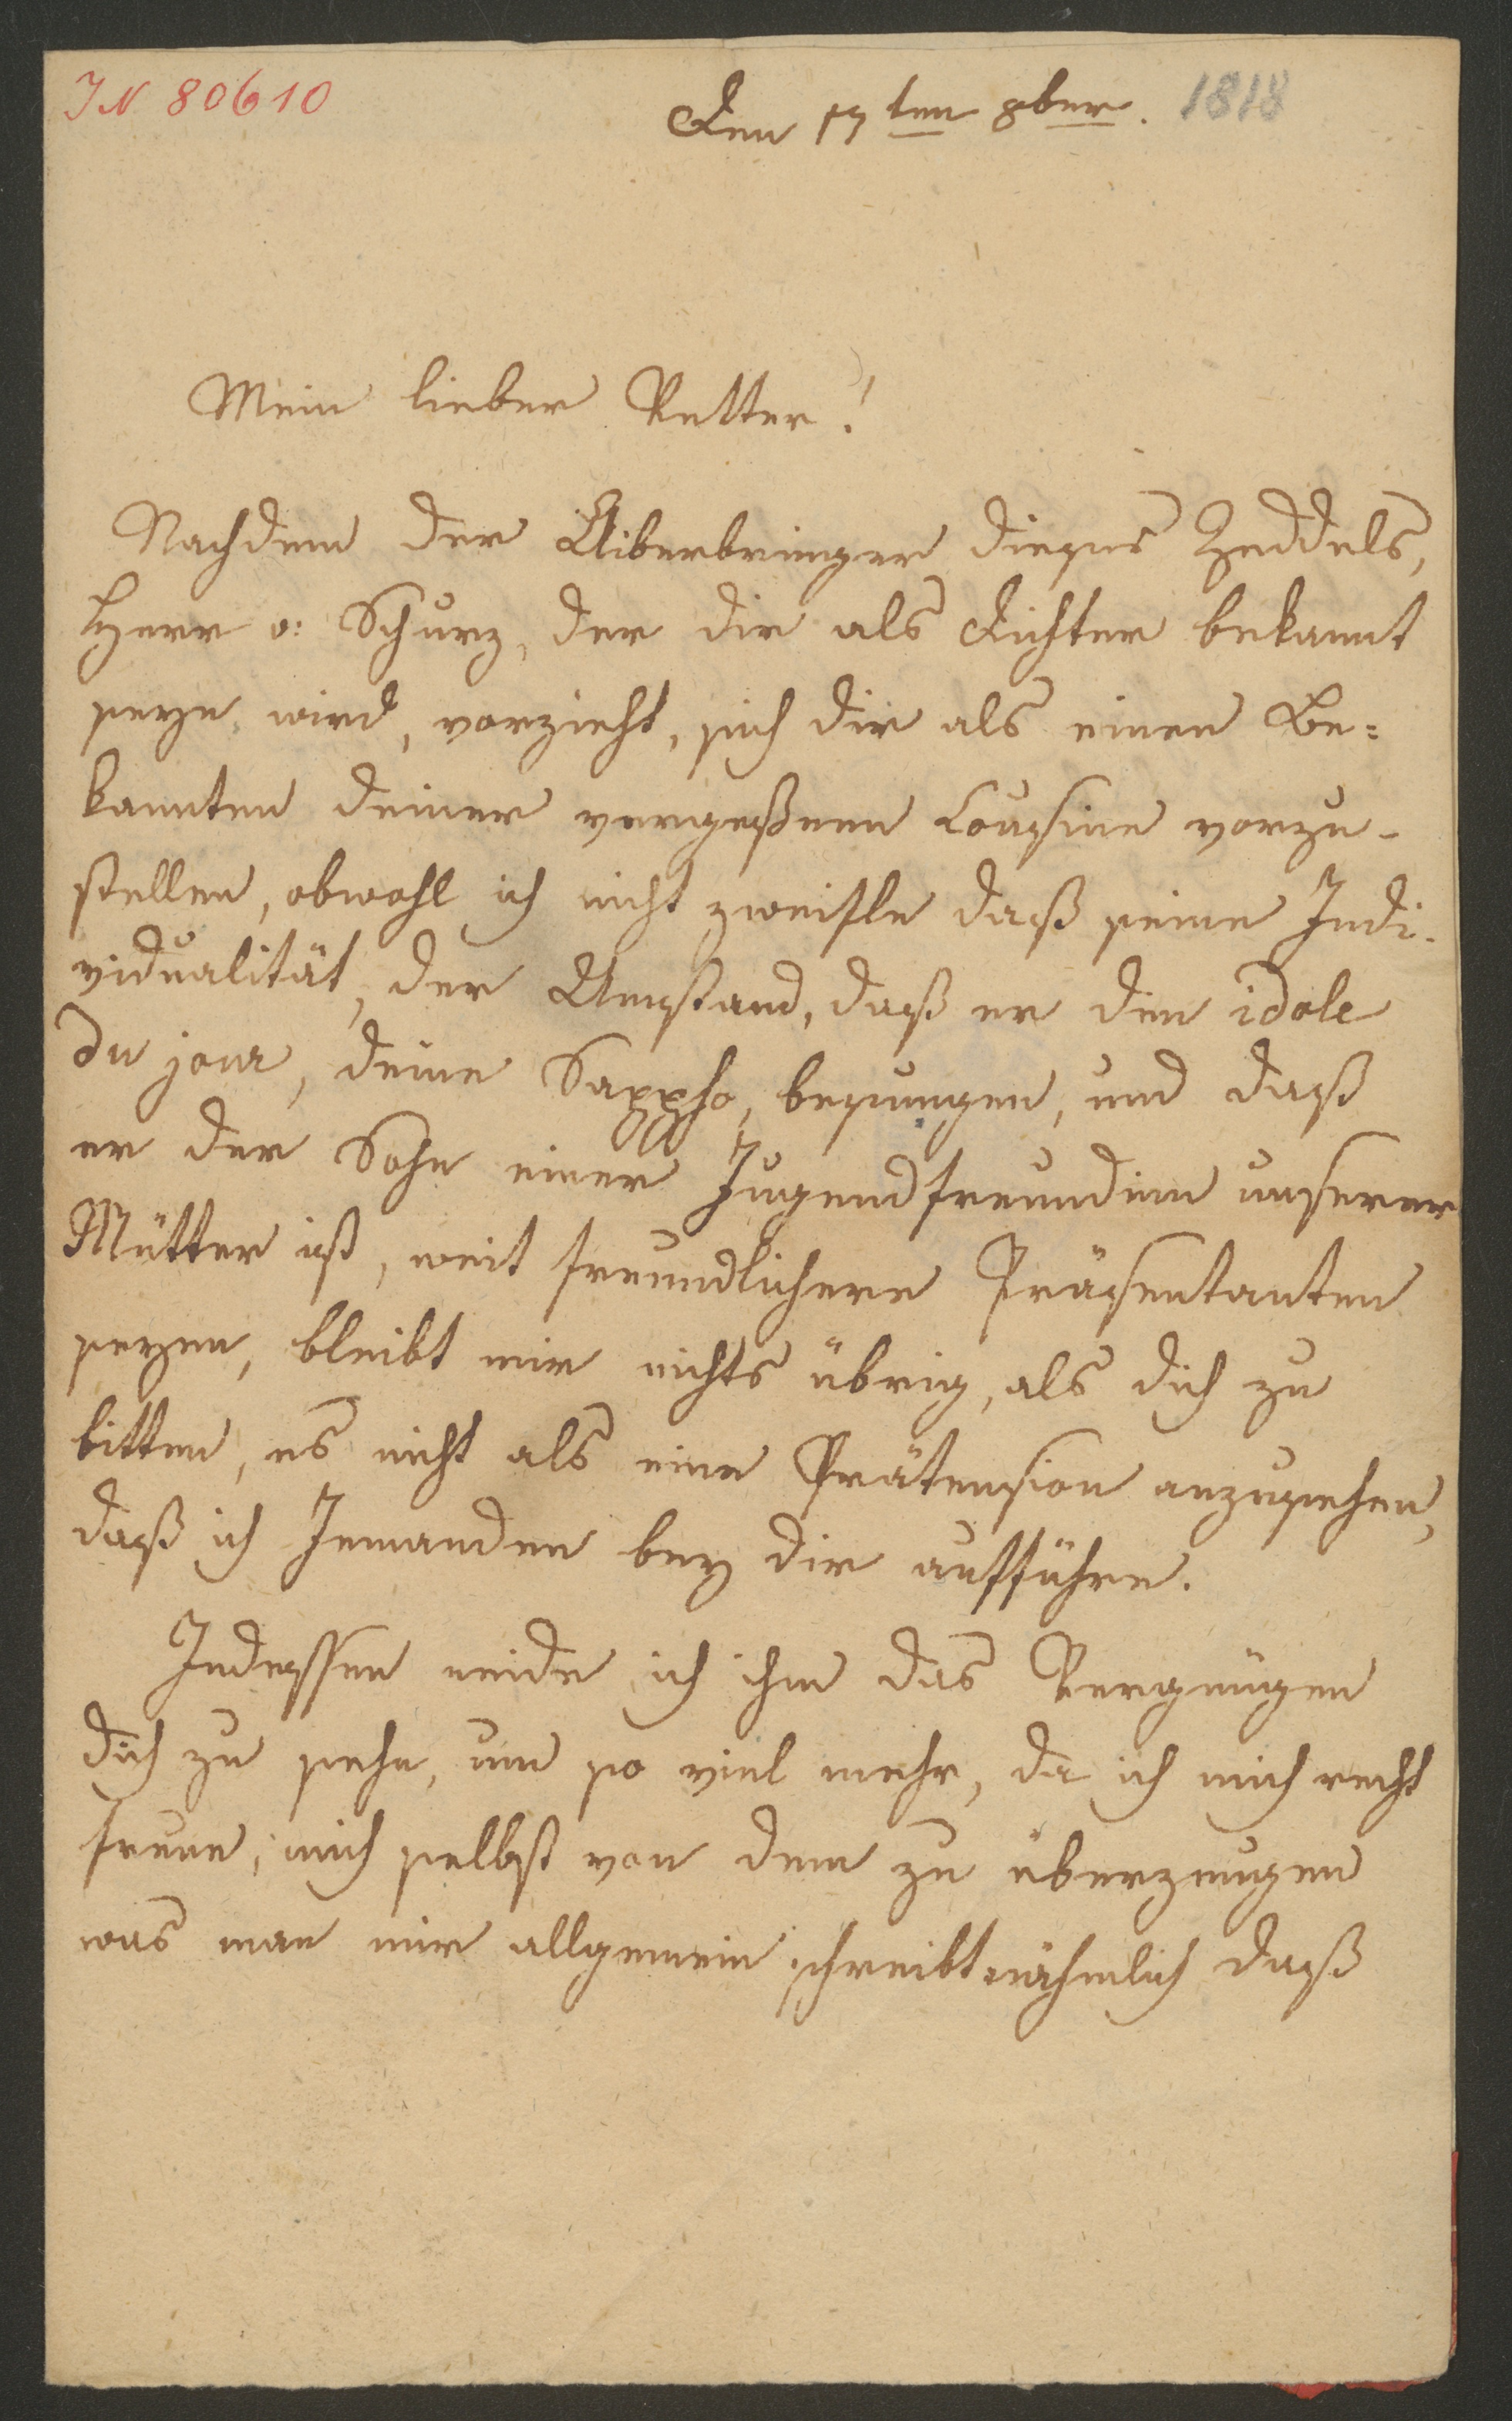 IN 80610
Den 17ten 8ber. 1818
Mein lieber Vetter!
Nachdem der Uiberbringer dieses Zeddels,
Herr v: Schurz, der dir als Dichter bekannt
seyn wird, vorzieht, sich dir als einen Be=
kannten deiner vergeßenen Cousine vorzu-
stellen, obwohl ich nicht zweifle daß seine Indi-
vidualität, der Umstand, daß er den idole
du jour, deine Sappho, besungen, und daß
er der Sohn einer Jugendfreundinn unserer
Mütter ist, weit freundlichere Präsentanten
seyen, bleibt mir nichts übrig, als dich zu
bitten, es nicht als eine Prätension anzusehen,
daß ich Jemanden bey dir aufführe.
Indessen neide ich ihm das Vergnügen
dich zu sehn, um so viel mehr, da ich mich recht
freue, mich selbst von dem zu überzeugen
was man mir allgemein schreibt nähmlich daß